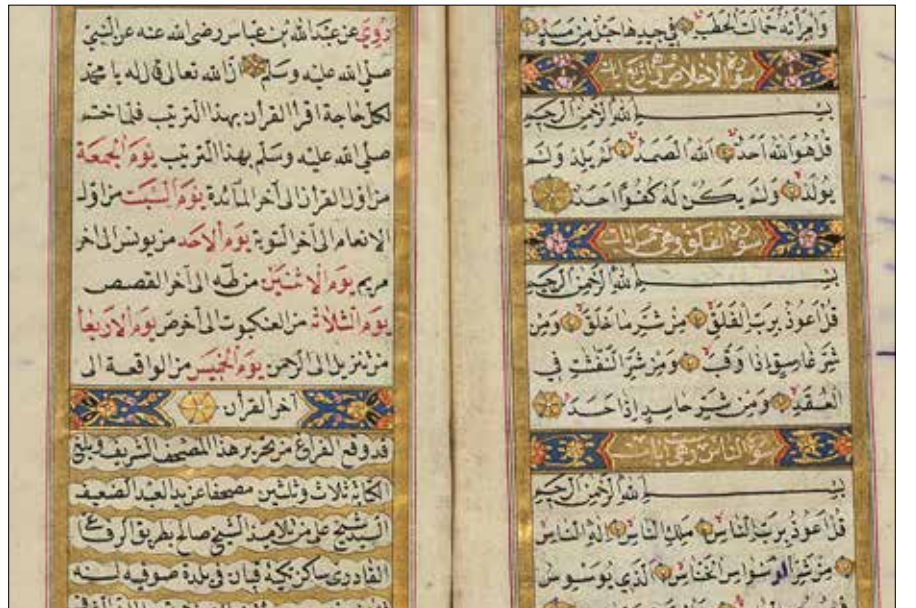 وَامْرَاَتُهُ حَمَّالَتَ الْحَطَبِ فِي جِيدِهَا حَبْلٌ مِنْ مَسَدٍ
سورة الاخلاص اربع ايات
بِسْمِ اللهِ الرَّحْمٰنِ الرَّحِيمِ
قُلْ هُوَ اللهُ اَحَدٌ اَللهُ الصَّمَدُ لَمْ يَلِدْ وَلَمْ
يُولَدْ وَلَمْ يَكُنْ لَهُ كُفُوًا اَحَدٌ
سورة الفلق وهى خمس ايات
بِسْمِ اللهِ الرَّحْمٰنِ الرَّحِيمِ
قُلْ اَعُوذُ بِرَبِّ الْفَلَقِ مِنْ شَرِّ مَا خَلَقَ وَمِنْ
شَرِّ غَاسِقٍ اِذَا وَقَبَ وَمِنْ شَرِّ النَّفَّثٰتِ فِي
الْعُقَدِ وَمِنْ شَرِّ حَاسِدٍ اِذَا حَسَدَ
سورة الناس وهى ست ايات
بِسْمِ اللهِ الرَّحْمٰنِ الرَّحِيمِ
قُلْ اَعُوذُ بِرَبِّ النَّاسِ مَلِكِ النَّاسِ اِلٰهِ النَّاسِ
مِنْ شَرِّ الْوَسْوَاسِ الْخَنَّاسِ الَّذِي يُوَسْوِسُ
رُوِيَ عن عبد الله بن عباس رضى الله عنه عن النبي
صلى الله عليه وسلم ان الله تعالى قال له يا محمد
لكل حاجة اقرأ القرأن بهذا الترتيب فلما ختم
صلى الله عليه وسلم بهذا الترتيب يوم الجمعة
من اول القرأن الى آخر المائدة يوم السبت من اول
الانعام الى آخر التوبة يوم الاحد من يونس الى اخر
مريم يوم الاثنين من طه الى آخر القصص
يوم الثلاثه من العنكبوت الى آخر ص يوم الاربعا
من تنزيل الى الرحمن يوم الخميس من الواقعة الى
آخر القرأن
قد وقع الفراغ من تحرير هذا المصحف الشريف وبلغ
الكتابة ثلاث وثلثين مصحفا عن يد العبد الضعيف
السيد شيخ على من تلاميذ الشيخ صالح بطريق الرفاعى
القادرى ساكن تكيه قپان فى بلدة صوفيه لسنه